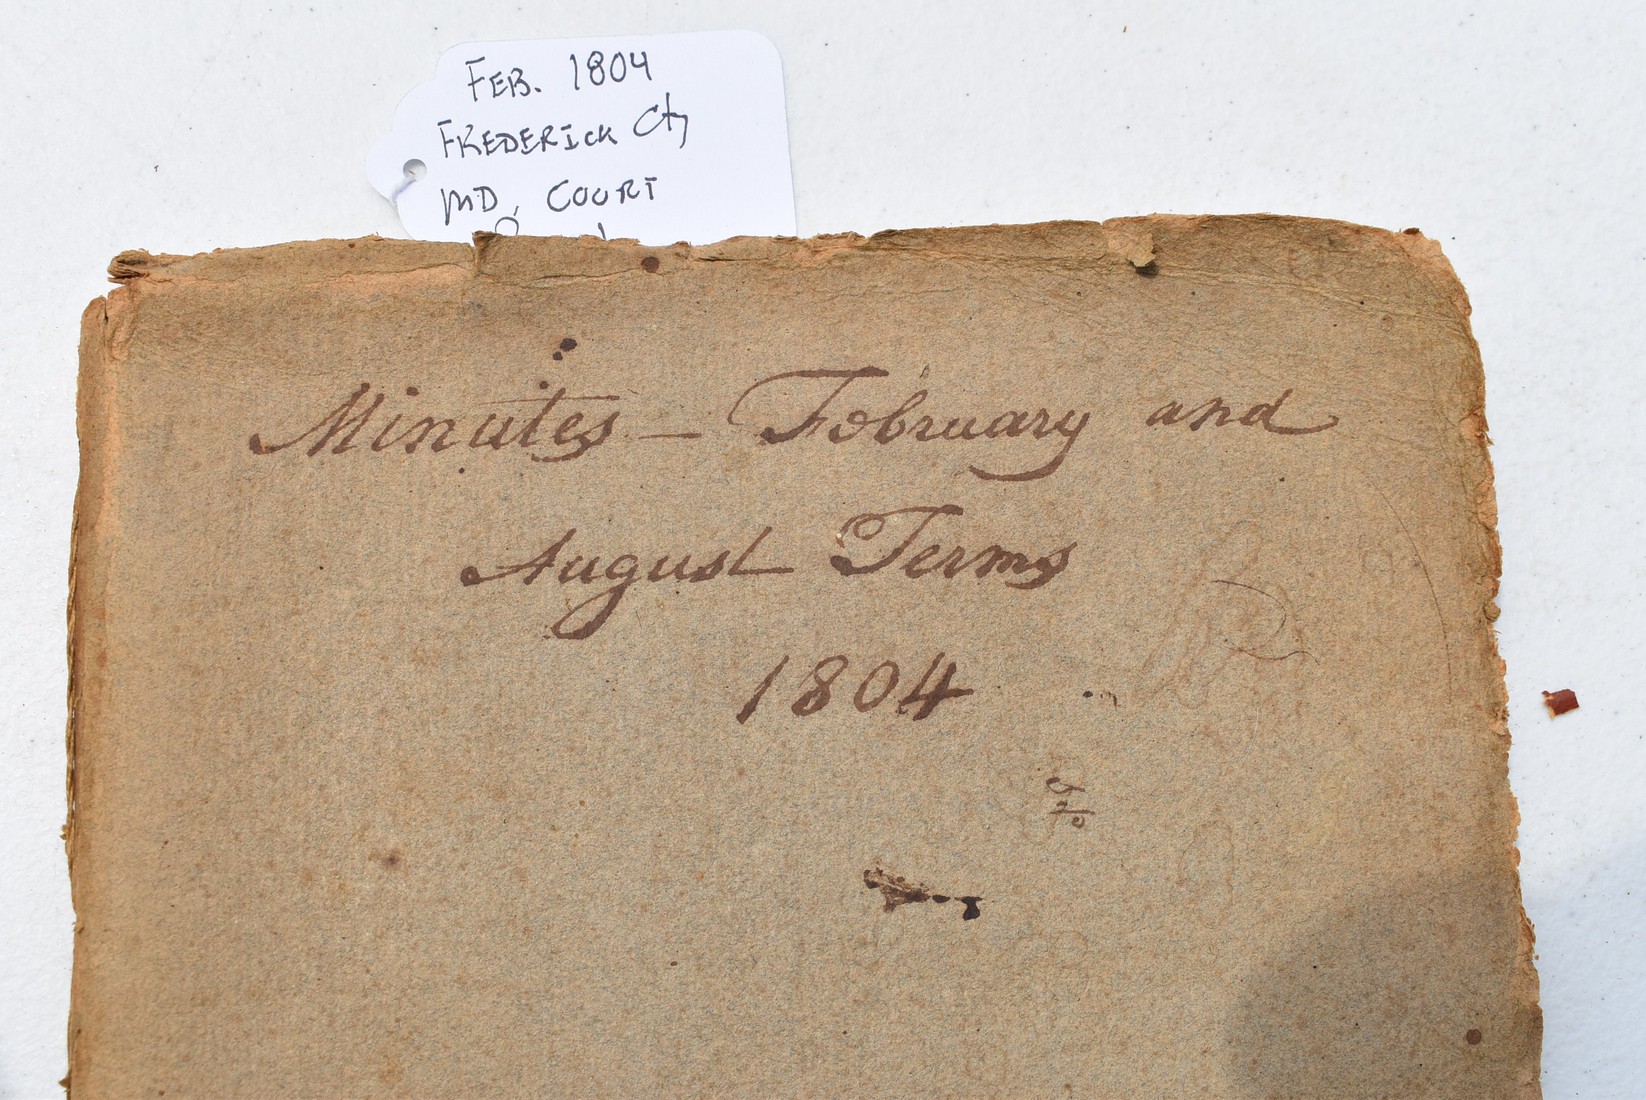 FEB. 1804
FREDERICK Cty
MD, COURT
Minutes - February and
August Terms
1804